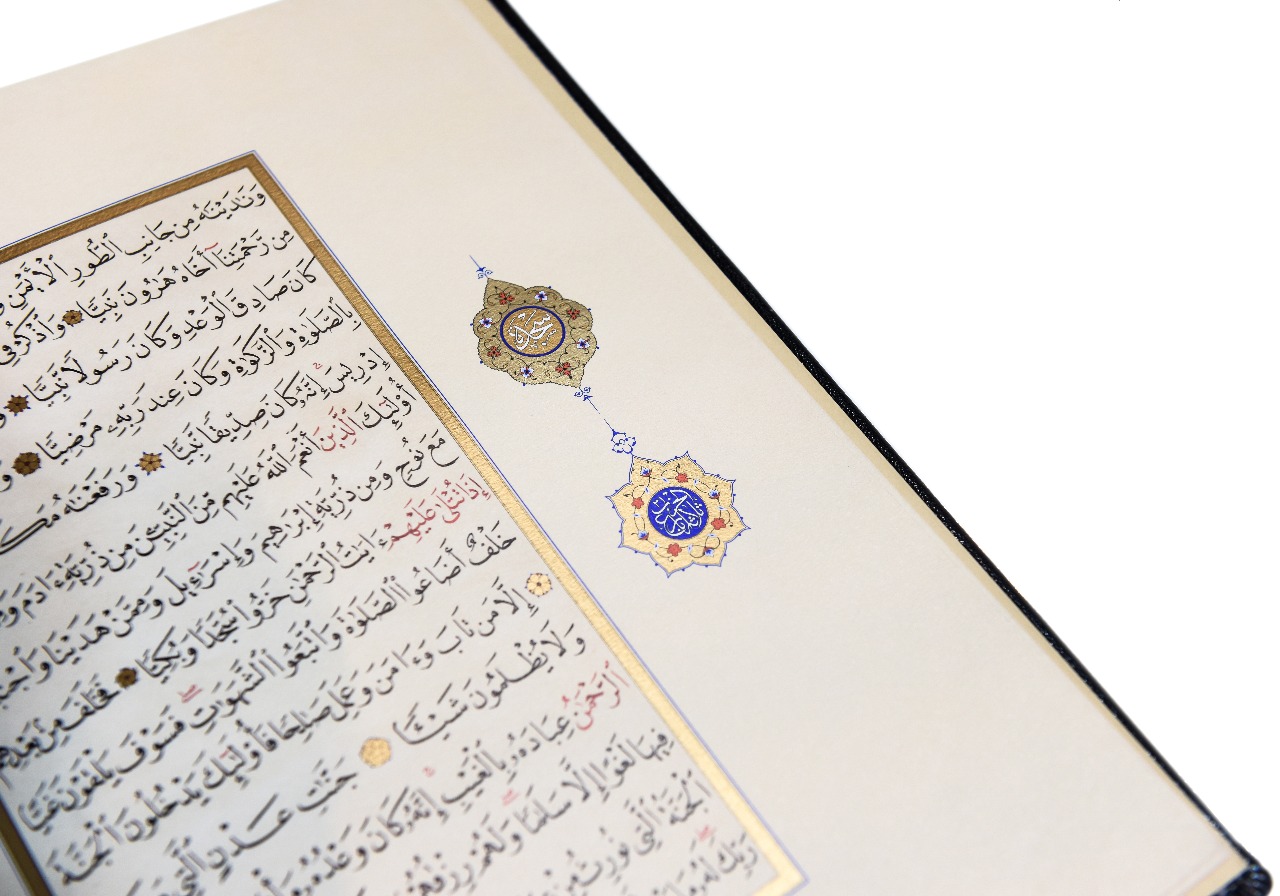 وَنَٰدَيْنَٰهُ مِن جَانِبِ ٱلطُّورِ ٱلْأَيْمَنِ
مِن رَّحْمَتِنَآ أَخَاهُ هَٰرُونَ نَبِيًّا وَٱذْكُرْ فِى
كَانَ صَادِقَ ٱلْوَعْدِ وَكَانَ رَسُولًا نَّبِيًّا
بِٱلصَّلَوٰةِ وَٱلزَّكَوٰةِ وَكَانَ عِندَ رَبِّهِۦ مَرْضِيًّا
إِدْرِيسَ إِنَّهُۥ كَانَ صِدِّيقًا نَّبِيًّا وَرَفَعْنَٰهُ
أُو۟لَٰٓئِكَ ٱلَّذِينَ أَنْعَمَ ٱللَّهُ عَلَيْهِم مِّنَ ٱلنَّبِيِّۦنَ مِن ذُرِّيَّةِ ءَادَمَ
مَعَ نُوحٍ وَمِن ذُرِّيَّةِ إِبْرَٰهِيمَ وَإِسْرَٰٓءِيلَ وَمِمَّنْ هَدَيْنَا
إِذَا تُتْلَىٰ عَلَيْهِمْ ءَايَٰتُ ٱلرَّحْمَٰنِ خَرُّوا۟ سُجَّدًا وَبُكِيًّا فَخَلَفَ مِنۢ بَعْدِهِمْ
خَلْفٌ أَضَاعُوا۟ ٱلصَّلَوٰةَ وَٱتَّبَعُوا۟ ٱلشَّهَوَٰتِ فَسَوْفَ يَلْقَوْنَ غَيًّا
إِلَّا مَن تَابَ وَءَامَنَ وَعَمِلَ صَٰلِحًا فَأُو۟لَٰٓئِكَ يَدْخُلُونَ ٱلْجَنَّةَ
وَلَا يُظْلَمُونَ شَيْـًٔا جَنَّٰتِ عَدْنٍ ٱلَّتِى
ٱلرَّحْمَٰنُ عِبَادَهُۥ بِٱلْغَيْبِ إِنَّهُۥ كَانَ وَعْدُهُۥ
فِيهَا لَغْوًا إِلَّا سَلَٰمًا وَلَهُمْ رِزْقُهُمْ
ٱلْجَنَّةُ ٱلَّتِى نُورِثُ مِنْ
رَبِّكَ لَهُۥ مَا
سجدة